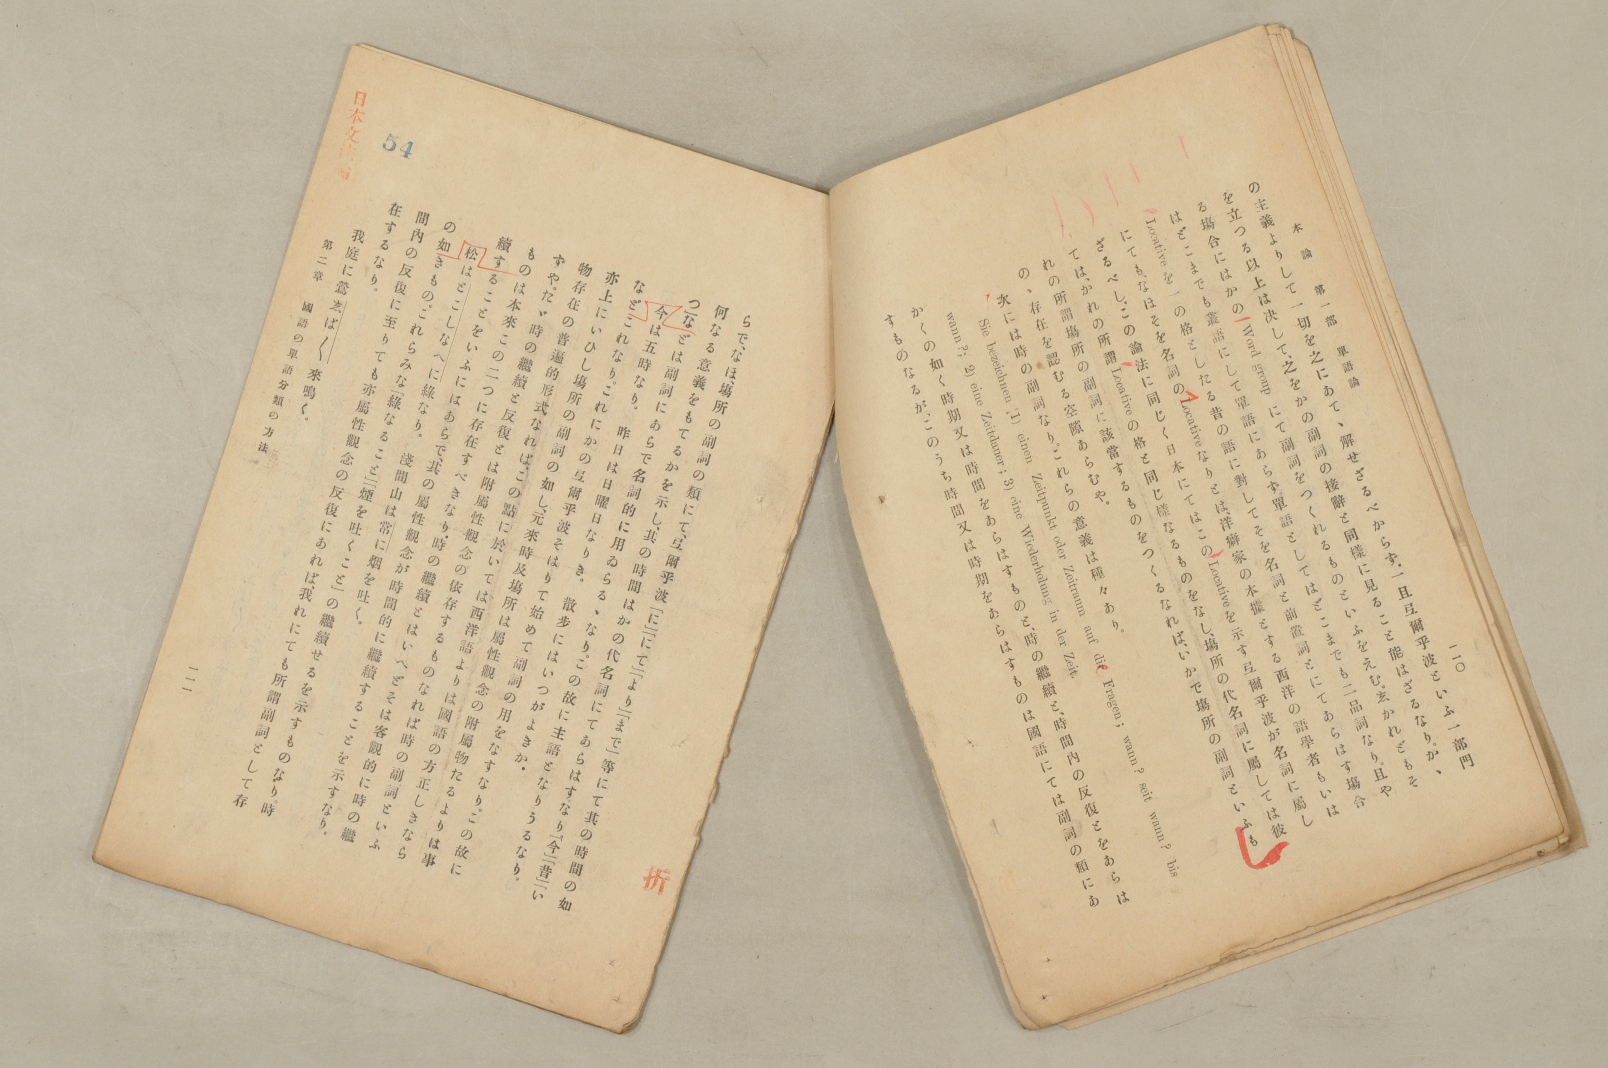 本論 第一部 單語論
二〇
の主義よりして一切を之にあて、解せざるべからず.一旦弖爾乎波といふ一部門
を立つる以上は决して、之をかの副詞の接辭と同樣に見ること能はざるなり.か、
る塲合にはかの Word group にて副詞をつくれるものといふをえむ.亥かれどもそ
はどこまでも叢語にして單語にあらず.單語としてはどこまでも二品詞なり.且や
Locative を一の格としたる昔の語に對してそを名詞と前置詞とにてあらはす塲合
にても、なほそを名詞の Locative なりとは、洋癖家の本據とする西洋の語學者もいは
ざるべし、この論法に同じく日本にてはこの Locative を示す弖爾乎波が名詞に屬し
ては、かれの所謂 Locative の格と同じ樣なるものをなし、塲所の代名詞に屬しては彼
れの所謂塲所の副詞に該當するものをつくるなれば、いかで塲所の副詞といふも
の、存在を認むる空隙あらむや。
次には時の副詞なり.これらの意義は種々あり.
Sie bezeichnen 1) einen Zeitpunkt oder Zeitraum auf die Fragen: wann? seit wann? bis
wann?; 2) eine Zeitdauer; 3) eine Wiederholung in der Zeit.
かくの如く時期又は時間をあらはすものと、時の繼續と、時間内の反復とをあらは
すものなるが、このうち時間又は時期をあらはすものは國語にては副詞の類にあ
らで、なほ塲所の副詞の類にて、弖爾乎波「に」「にて」「より」「まで」等にて其の時間の如
何なる意義をもてるかを示し、其の時間はかの代名詞にてあらはすなり.「今」「昔」「い
つ」などは副詞にあらで名詞的に用ゐらるゝなり.この故に主語となりうるなり。
今は五時なり。 昨日は日曜日なりき。 散歩にはいつがよきか.
などこれなり.これにかの弖爾乎波そはりて始めて副詞の用をなすなり.この故に
亦上にいひし塲所の副詞の如し、元來時及塲所は屬性觀念の附屬物たるよりは事
物存在の普遍的形式なれば、この點に於いては西洋語よりは國語の方正しきなら
ずや.たゞ時の繼續と反復とは附屬性觀念の依存するものなれば時の副詞といふ
ものは本來この二つに存在すべきなり.時の繼續とはいへどそは客觀的に時の繼
續することをいふにはあらで、其の屬性觀念が時間的に繼續することを示すなり.
松はとこしなへに綠なり。 淺間山は常に烟を吐く.
の如きもの.これらみな「綠なること」「煙を吐くこと」の繼續せるを示すものなり.時
間内の反復に至りても亦屬性觀念の反復にあれば、我れにても所謂副詞として存
在するなり.
我庭に鶯亥ば〱來鳴く.
第二章 國語の單語分類の方法
二一
54
折